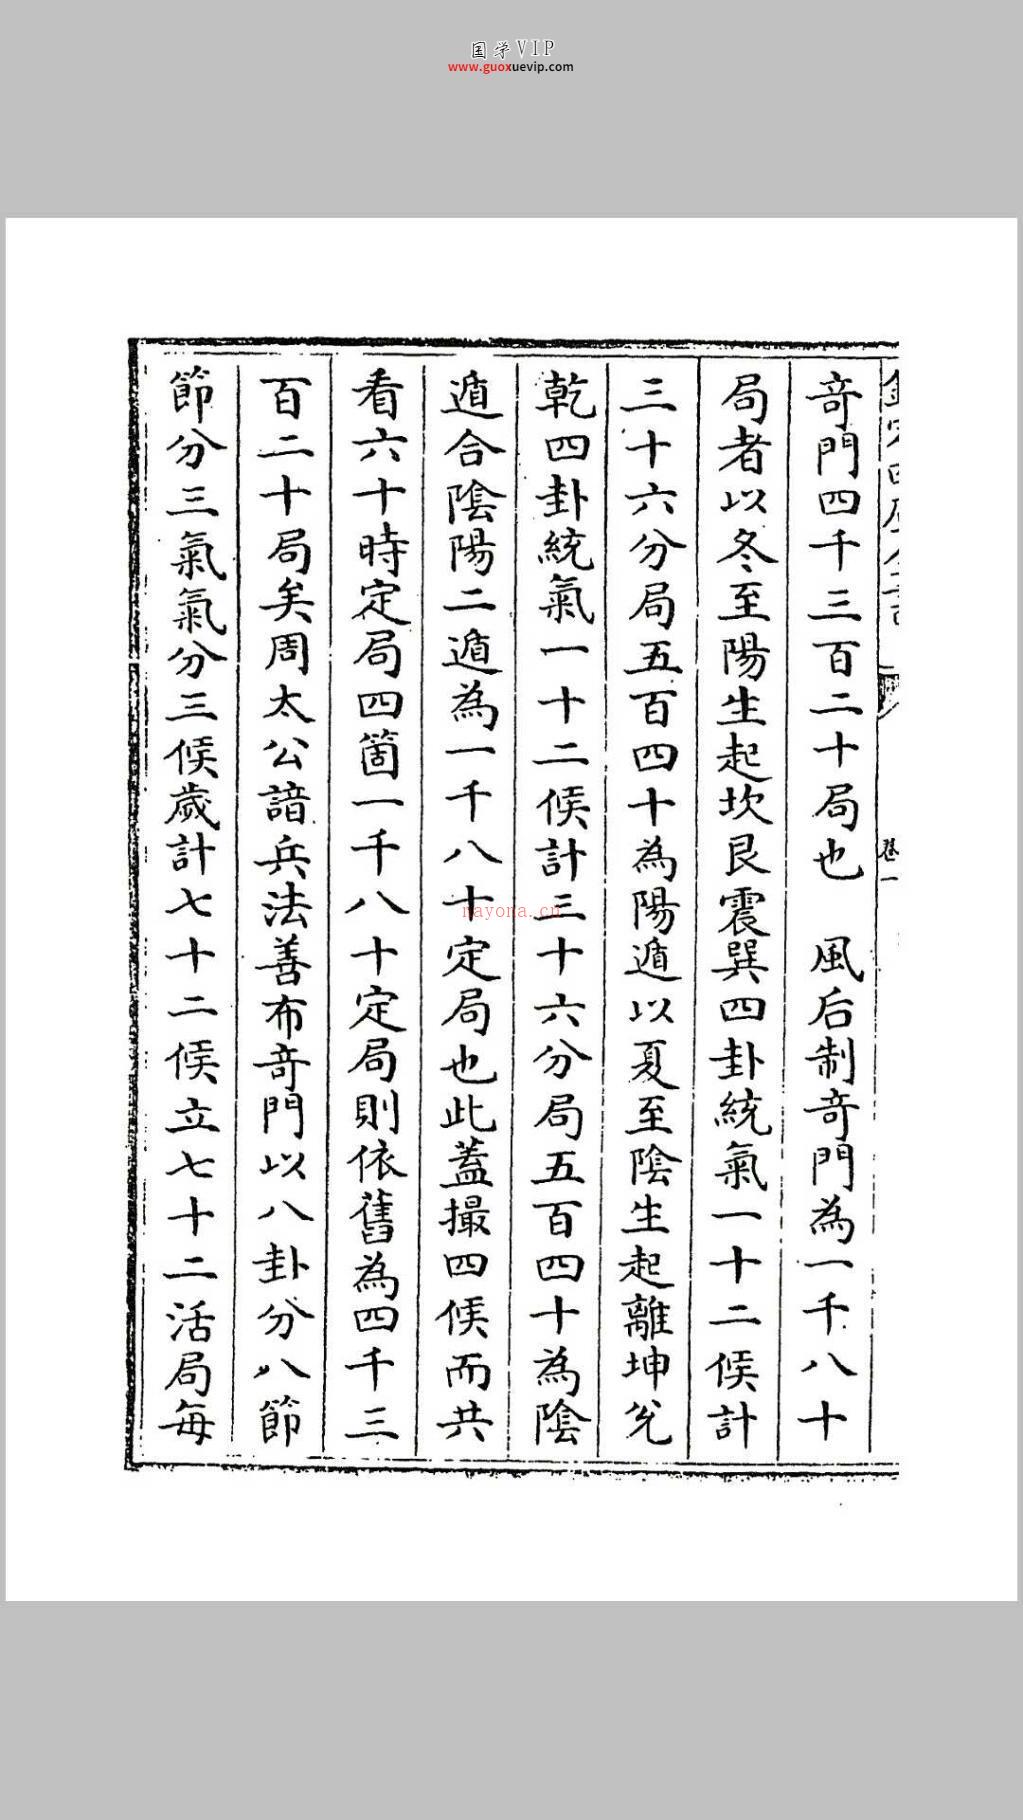 国学VIP
www.guoxuevip.com
奇門四千三百二十局也　風后制奇門為一千八十
局者以冬至陽生起坎艮震巽四卦統氣一十二候計
三十六分局五百四十為陽遁以夏至陰生起離坤兌
乾四卦統氣一十二候計三十六分局五百四十為陰
遁合陰陽二遁為一千八十定局也此蓋撮四候而共
看六十時定局四箇一千八十定局則依舊為四千三
百二十局矣周太公諳兵法善布奇門以八卦分八節
節分三氣氣分三候歲計七十二候立七十二活局每
卷一
nayona.cn